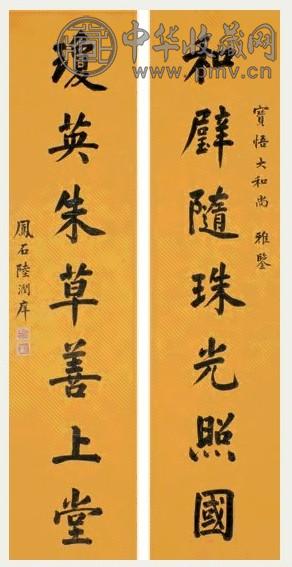 中华收藏网
www.pmv.cn
寶悟大和尚 雅鑒
和璧隨珠光照國
瓊英朱草善上堂
鳳石陸潤庠